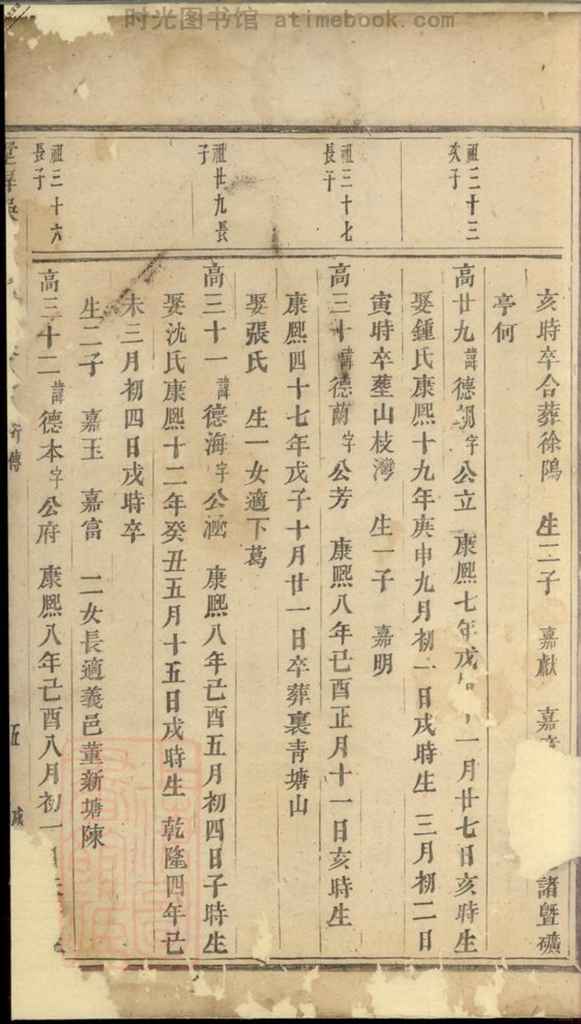 时光图书馆 atimebook.com
亥時卒合葬徐隖 生二子 嘉獻 嘉 諸暨礦
亭何
祖三十三
次子
高廿九諱德 字公立 康熙七年戊 一月廿七日亥時生
娶鍾氏康熙十九年庚申九月初一日戌時生 三月初二日
寅時卒塟山枝灣 生一子 嘉明
祖三十七
長子
高三十諱德蘭字公芳 康熙八年己酉正月十一日亥時生
康熙四十七年戊子十月廿一日卒葬裏青塘山
娶張氏 生一女適下葛
祖廿九長
子
高三十一諱德海字公涵 康熙八年己酉五月初四日子時生
娶沈氏康熙十二年癸丑五月十五日戌時生 乾隆四年己
未三月初四日戌時卒
生二子 嘉玉 嘉富 二女長適義邑董新塘陳
祖三十六
長子
高三十二諱德本字公府 康熙八年己酉八月初一